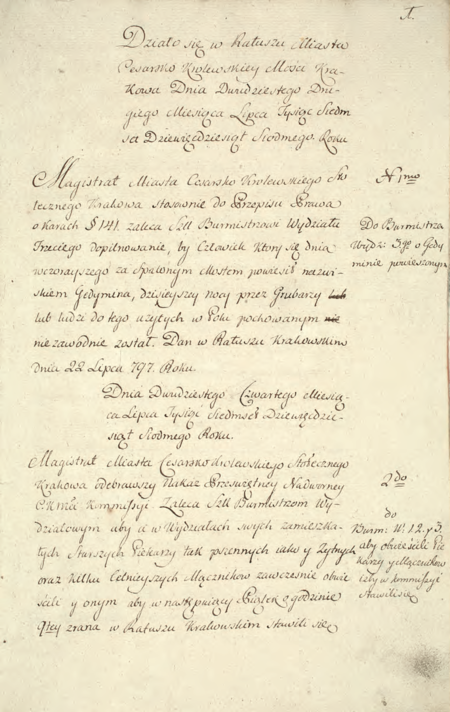 1.
Działo się w Ratuszu Miasta
Cesarsko Krolewskiey Mości Kra-
kowa Dnia Dwudziestego Dru-
giego Miesiąca Lipca Tysiąc Siedm
set Dziewięćdziesiąt Siodmego Roku
Magistrat Miasta Cesarsko Krolewskiego Sto
łecznego Krakowa stosownie do Przepisu Prawa
o karach § 141. zaleca Szll Burmistrzowi Wydziału
Trzeciego dopilnowanie, by Człowiek Ktory się dnia
wczorayszego za Spalonym Mostem powiesił nazwi-
skiem Gedymina, dzisieyszey nocy przez Grubarzy
lub ludzi do tego użytych w Polu pochowanym
niezawodnie został. Dan w Ratuszu Krakowskim
dnia 22 Lipca 797. Roku.
N 1mo
Do Burmistrza
Wydz: 3go o Gedy
minie powieszonym
Dnia Dwudziestego Czwartego Miesią-
ca Lipca Tysiąc Siedmset Dziewięćdzie-
siąt Siodmego Roku.
Magistrat Miasta Cesarsko Krolewskiego Stołecznego
Krakowa odebrawszy Nakaz Prześwietney Nadworney
C. Krła Kommissyi Zaleca Szll Burmistrzom Wy-
działowym aby d w Wydziałach swych zamieszka-
łych Starszych Piekarzy tak pszennych iako y Żytnych
oraz kilku celnieyszych Mącznikow zawcześnie obwie
ścili y onym aby w następuiący Piątek o godzinie
9tey zrana w Ratuszu Krakowskim stawili się
2do
do
Burm: W. 1. 2. y 3.
aby obwieścili Pie
karzy y Mącznikow
izby w kommissyi
stawili się